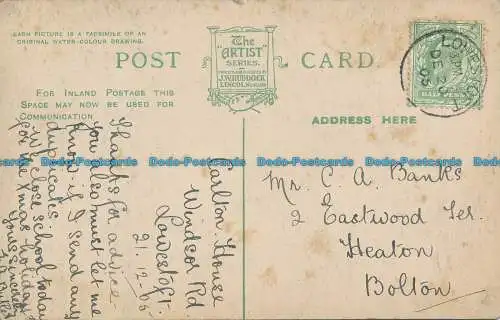 EACH PICTURE IS A FACSIMILE OF AN
ORIGINAL WATER-COLOUR DRAWING.
POST
The
"ARTIST"
SERIES.
J.W.RUDDOCK
LINCOLN.
CARD.
FOR INLAND POSTAGE THIS
SPACE MAY NOW BE USED FOR
COMMUNICATION
ADDRESS HERE
LOWESTOFT
DE 21
05
Carlton House
Windsor Rd
Lowestoft.
21.12.05
Thanks for advice.
You also must let me
know if I send any
duplicates.
We close school today
for the Xmas holiday
Yours sincerely
Mr. C. A. Banks
2 Eastwood Ter.
Heaton
Bolton
Bdo-Postcards